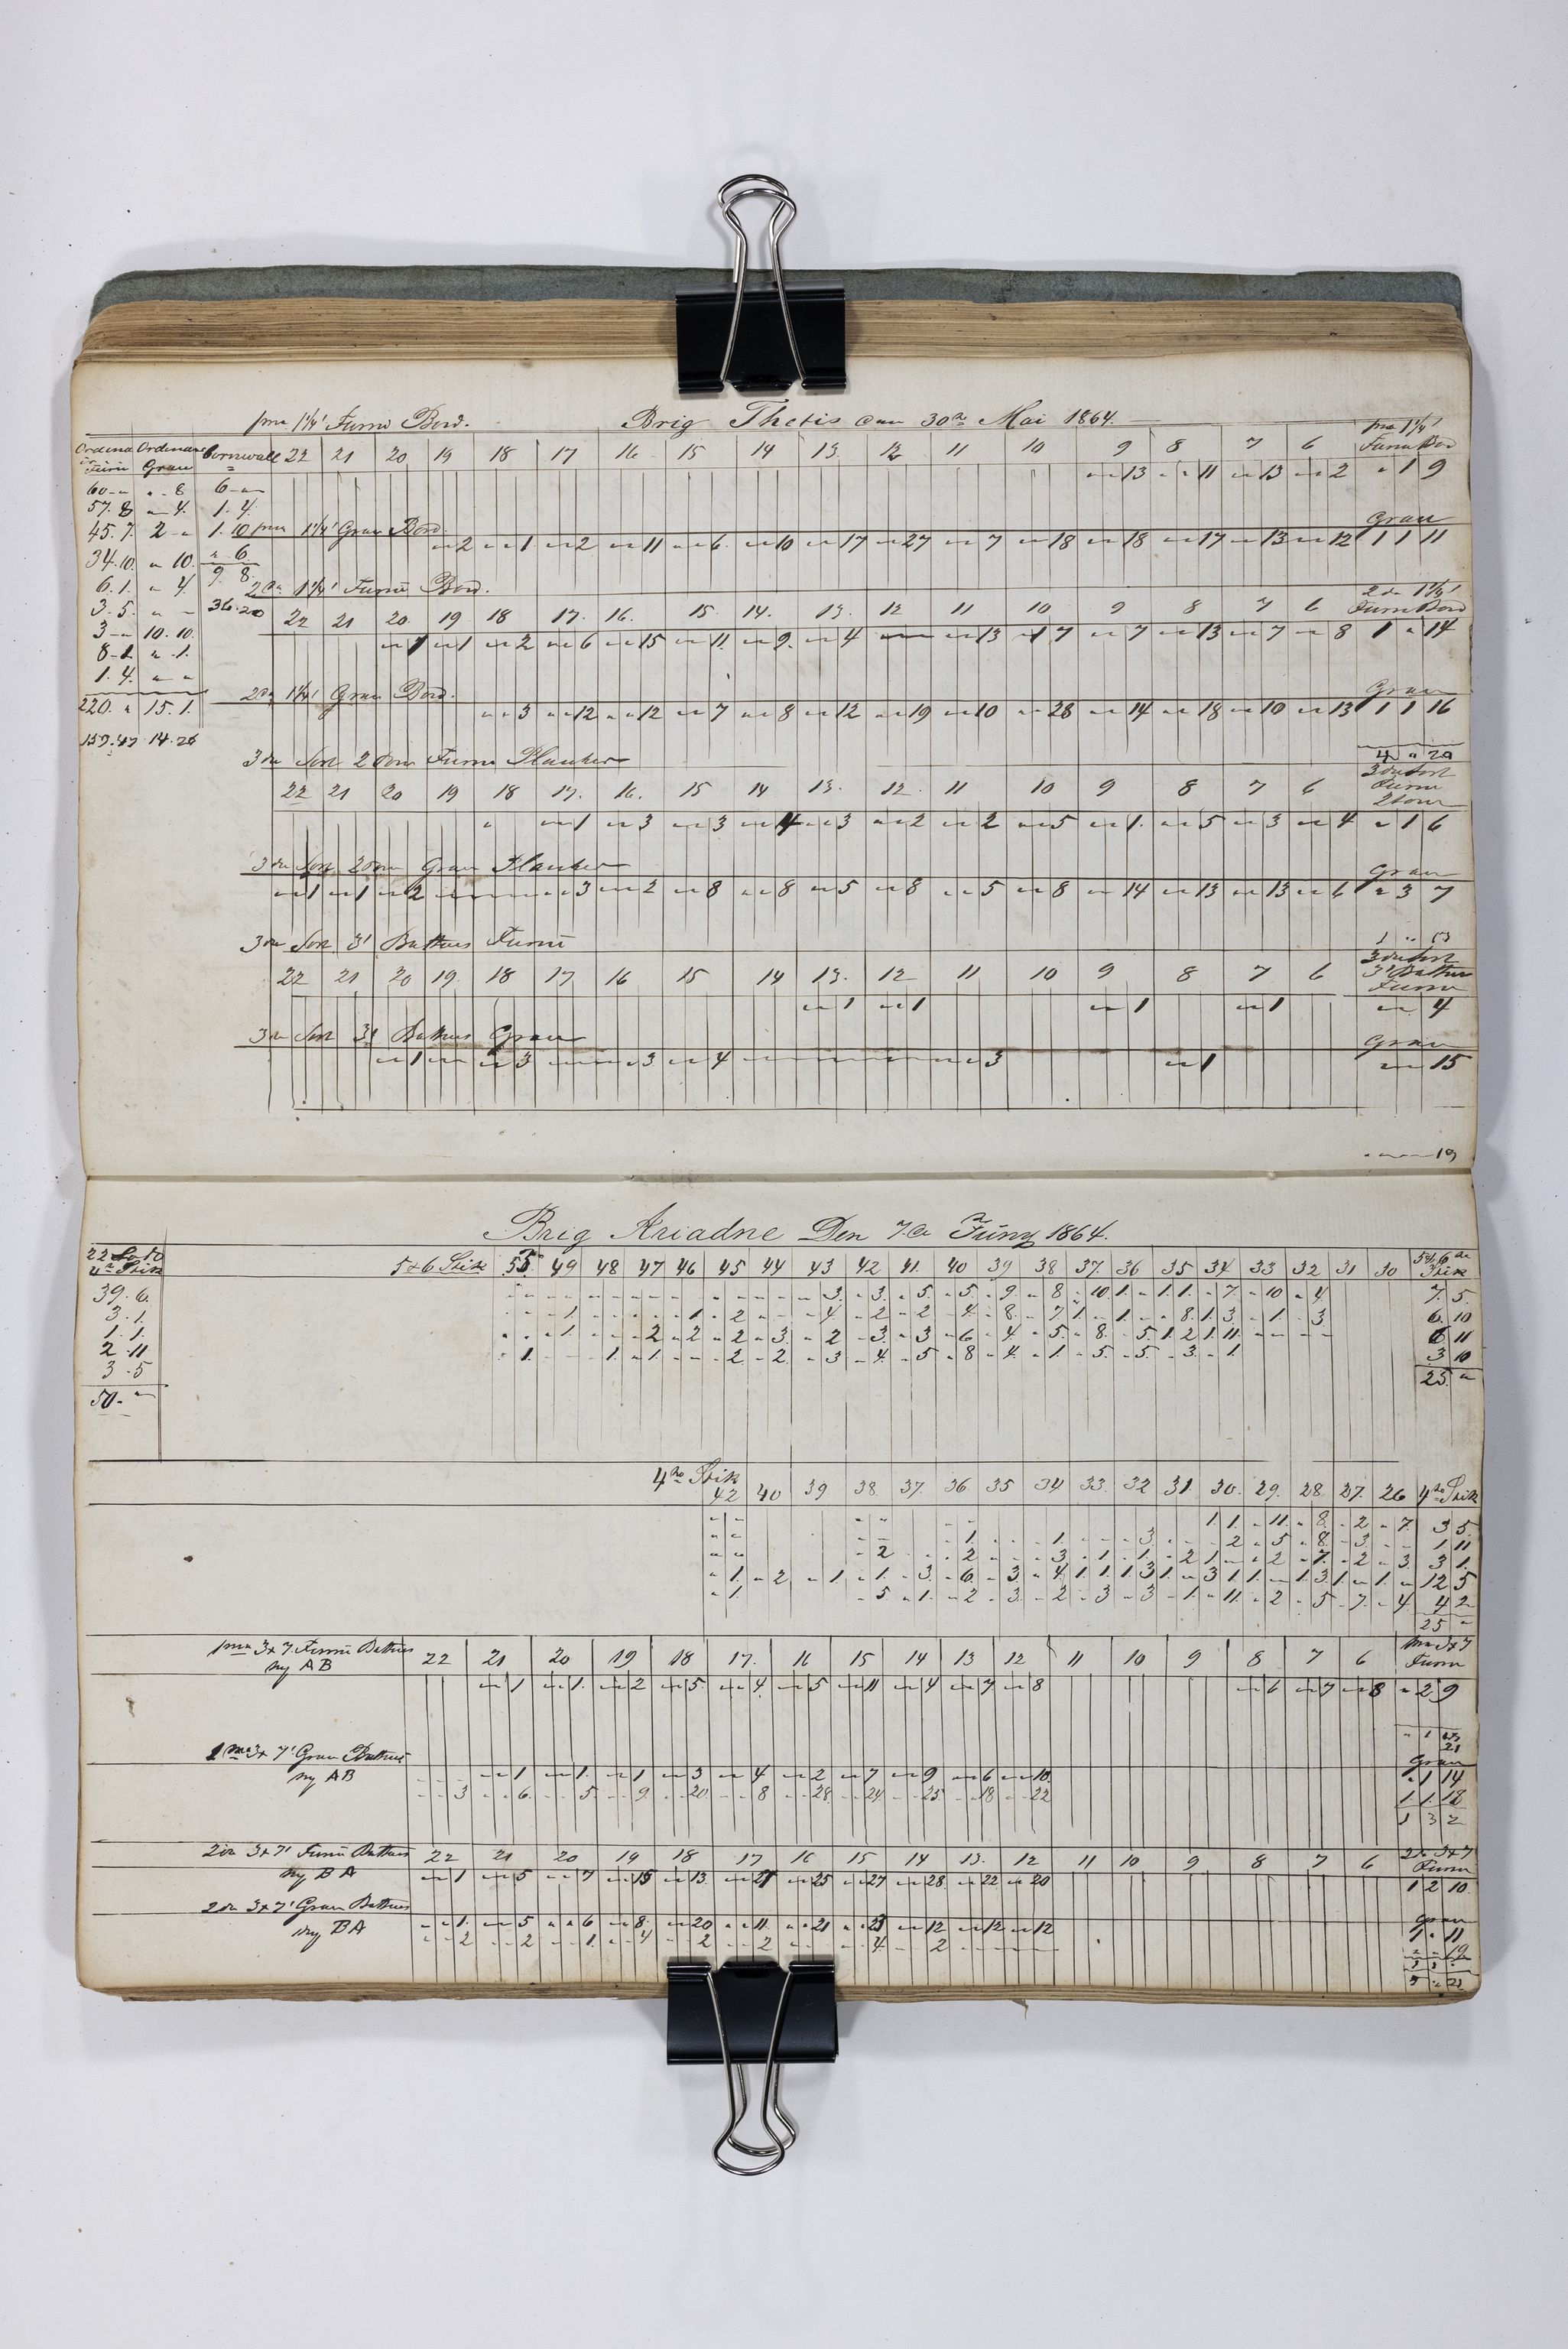 pma 1¼' Furu Bord. Brig Thetis den 30te Mai 1864. pma 1¼'
Ordinær Furu Ordinær Gran Cornwall 22 21 20 19 18 17 16 15 14 13 12 11 10 9 8 7 6 Furu Bord
13 11 13 2 " 1 9
60 - " " - 8 6 - "
57. 8 " 4. 1. 4.
45. 7. 2 - " 1. 10 pma 1¼' Gran Bord. Gran
2 1 2 11 6 10 17 27 7 18 18 17 13 12 1 1 11
34. 10. " 10. " 6.
6. 1. " 4. 9. 8.
2den 1¼' Furu Bord. 2de 1¼'
3. 5. " - 36. 20 22 21 20 19 18 17. 16. 15. 14. 13. 12 11 10 9 8 7 6 Furu Bord
3 - " 10. 10. 1 1 2 6 15 11. 9. 4 13 17 7 13 7 8 1 " 14
8 - 1. " . 1.
1. 4. " "
220. " 15. 1. 2den 1¼' Gran Bord. Gran
3 12 12 7 8 12 19 10 28 14 18 10 13 1 1 16
159. 47 14. 26
3die Sort 2 Tom Furu Planker 4 " 20
22 21 20 19 18 17. 16. 15 14 13. 12. 11 10 9 8 7 6 3die Sort Furu 2 Tom
1 3 3 4 3 2 2 5 1. 5 3 4 " 1 6
3die Sort 2 Tom Gran Planker Gran
1 1 2 3 2 8 8 5 8 5 8 14 13 13 6 " 3 7
3die Sort 3' Battens Furu
22 21 20 19 18 17 16 15 14 13. 12 11 10 9 8 7 6 3die Sort 3' Battens Furu
1 1 1 1 4
3die Sort 3' Battens Gran Gran
1 3 3 4 3 1 15
19
Brig Ariadne Den 7de Juny 1864.
5 & 6 Stik 55 49 48 47 46 45 44 43 42 41. 40 39 38 37. 36 35 34 33 32 31 30 5 & 6 Stik
39. 6. 3. 3. 5. 5. 9. 8 10 1. 1. 1. 7. 10 4 7. 5.
3. 1. 1 1. 2 4 2 2 4. 8. 7 1. 1. 8. 1. 3. 1. 3 6. 10
1. 1. 1. 2 2 2 3 2 3. 3 6 4 5. 8. 5. 1. 2 1. 11. 6 11
2. 11 1. 1. 1. 2 2. 3 4. 5 8 4. 1. 5. 5. 3. 1. 3 10
3. 5 25. "
50. "
4de Stik
42 40 39 38. 37. 36. 35 34 33. 32 31. 30. 29. 28. 27. 26 4de Stik
1. 1. 11. 8. 2 7. 3 5.
1. 1. 3. 2 5. 8 3. 1 11
2 2 3. 1. 1. 2 1. 2 7. 2 3. 3 1.
1. 2 1. 1. 3. 6. 3. 4 1. 1. 1. 3 1. 3 1 1. 1. 3. 1. 1. 12 5
1. 5 1. 2 3. 2 3 3 1. 11. 2 5 7. 4. 4 2
25 "
pma 3 x 7. Furu Battens pma 3 x 7
ny AB 22 21 20 19 18 17. 16 15 14 13 12 11 10 9 8 7 6 Furu
1 1. 2 5. 4. 5 11 4 7 8 6 7 8 " 2 9
pma 3 x 7' Gran Battens Gran
ny AB 1 1. 1 3 4 2 7 9 6 10. " 1 14
3 6. 5 9 20 8 28 24 25 18 22 1 1 18
1 3 2
2den 3 x 7' Furu Battens 22 21 20 19 18 17 16 15 14 13. 12 11 10 9 8 7 6 2de 3 x 7
ny BA 1 5 7 15 13. 21 25 27 28. 22 20 Furu
1 2 10.
2den 3 x 7' Gran Battens Gran
ny BA 1. 5 6 8. 20 11. 21 23 12 12 12 1 " 11
2 2 1. 4 2 2 4. 2